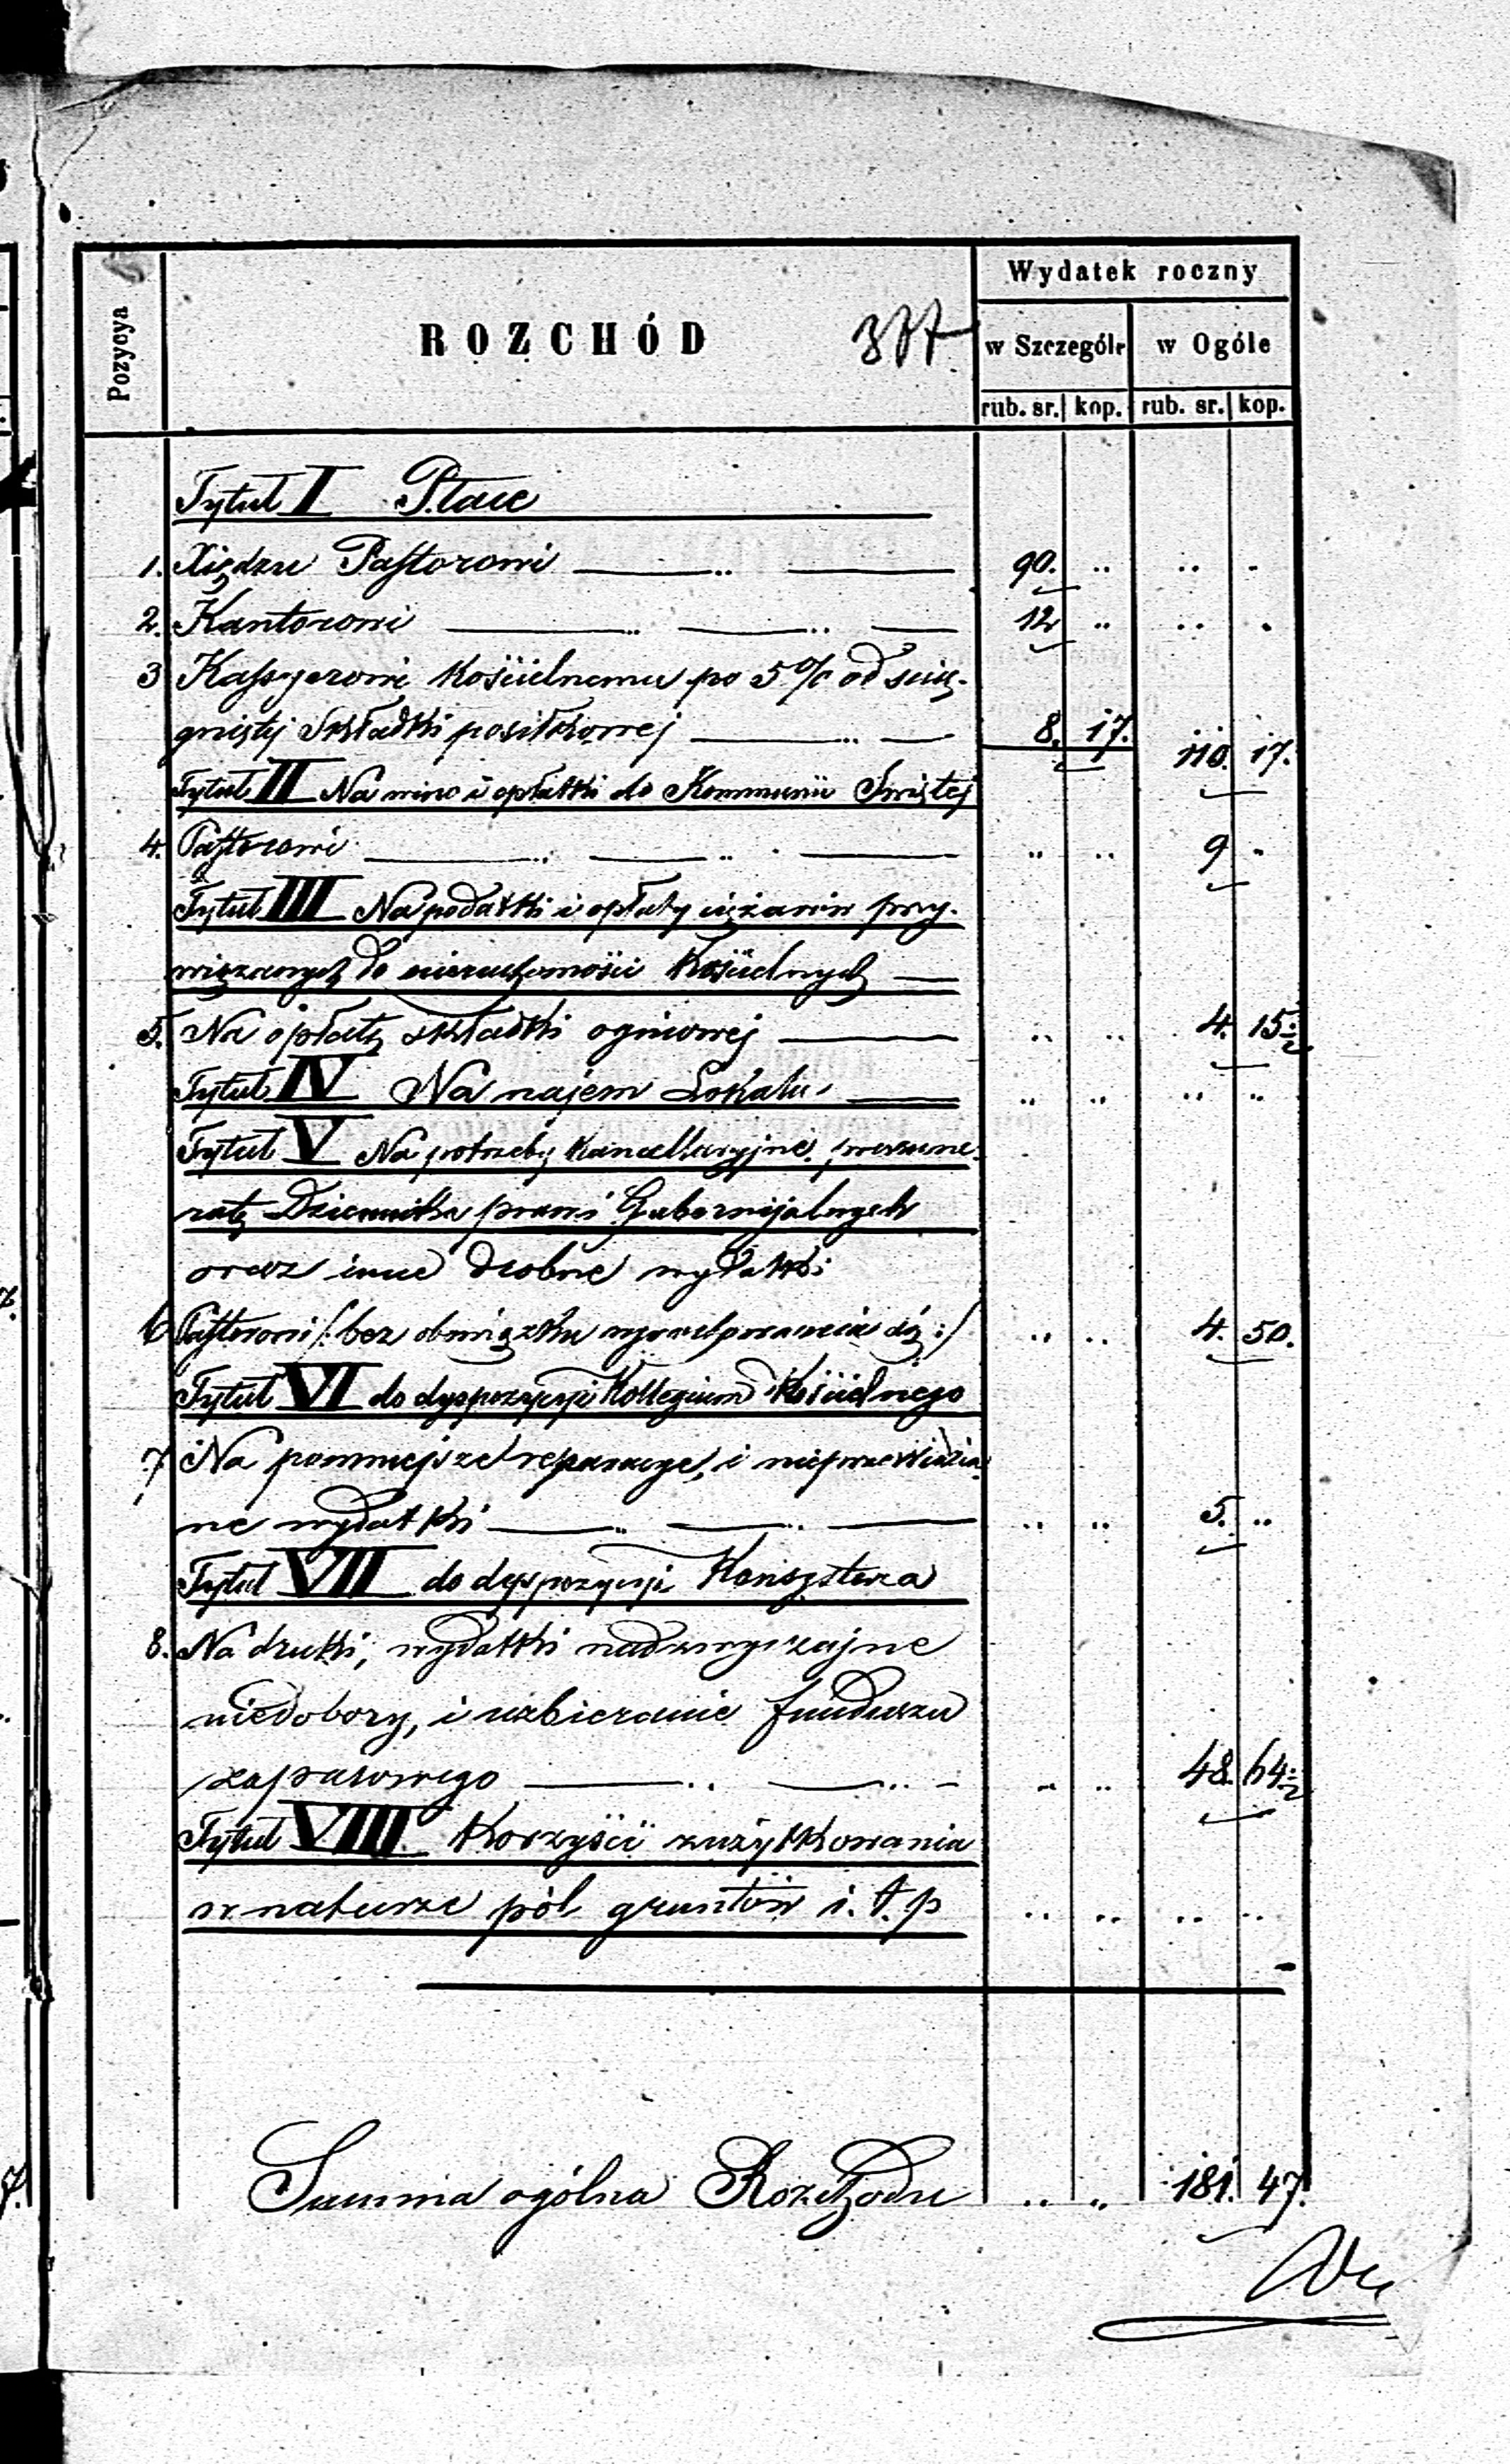 Wydatek roczny
Pozycya
ROZCHÓD
w Szczególe
w Ogóle
rub. sr. kop. rub. sr. kop.
Tytuł I Płace
1. Xiędzu Pastorowi 90. .. .. .
2. Kantorowi 12 .. .. .
3 Kassyerowi kościelnemu po 5% od ścią-
gniętej Składki posiłkowej 8. 17. 110. 17.
Tytuł II Na wino i opłatki do Kommunii Świętej
4. Pastorowi .. .. 9 .
Tytuł III Na podatki i opłaty ciężarów przy-
wiązanych do nieruchomości Kościelnych
5. Na opłatę składki ogniowej .. .. 4. 15½
Tytuł IV Na najem Lokalu .. .. .. ..
Tytuł V Na potrzeby kancellaryjne, prenume-
ratę Dziennika praw i Gubernijalnych
oraz inne drobne wydatki
6 Pastorowi /: bez obowiązku się :/ .. .. 4. 50.
Tytuł VI do dyspozycyi Kollegium Kościelnego
7 Na pomniejsze reparacye, i nieprzewidzia-
ne wydatki .. .. 5. ..
Tytuł VII do dyspozycyi Konsystorza
8. Na druki, wydatki nadzwyczajne
niedobory, i uzbieranie funduszu
zapasowego .. .. 48. 64½
Tytuł VIII Korzyści zużytkowania
w naturze pól gruntów i. t. p .. .. .. ..
Summa ogólna Rozchodu .. .. 181. 47.